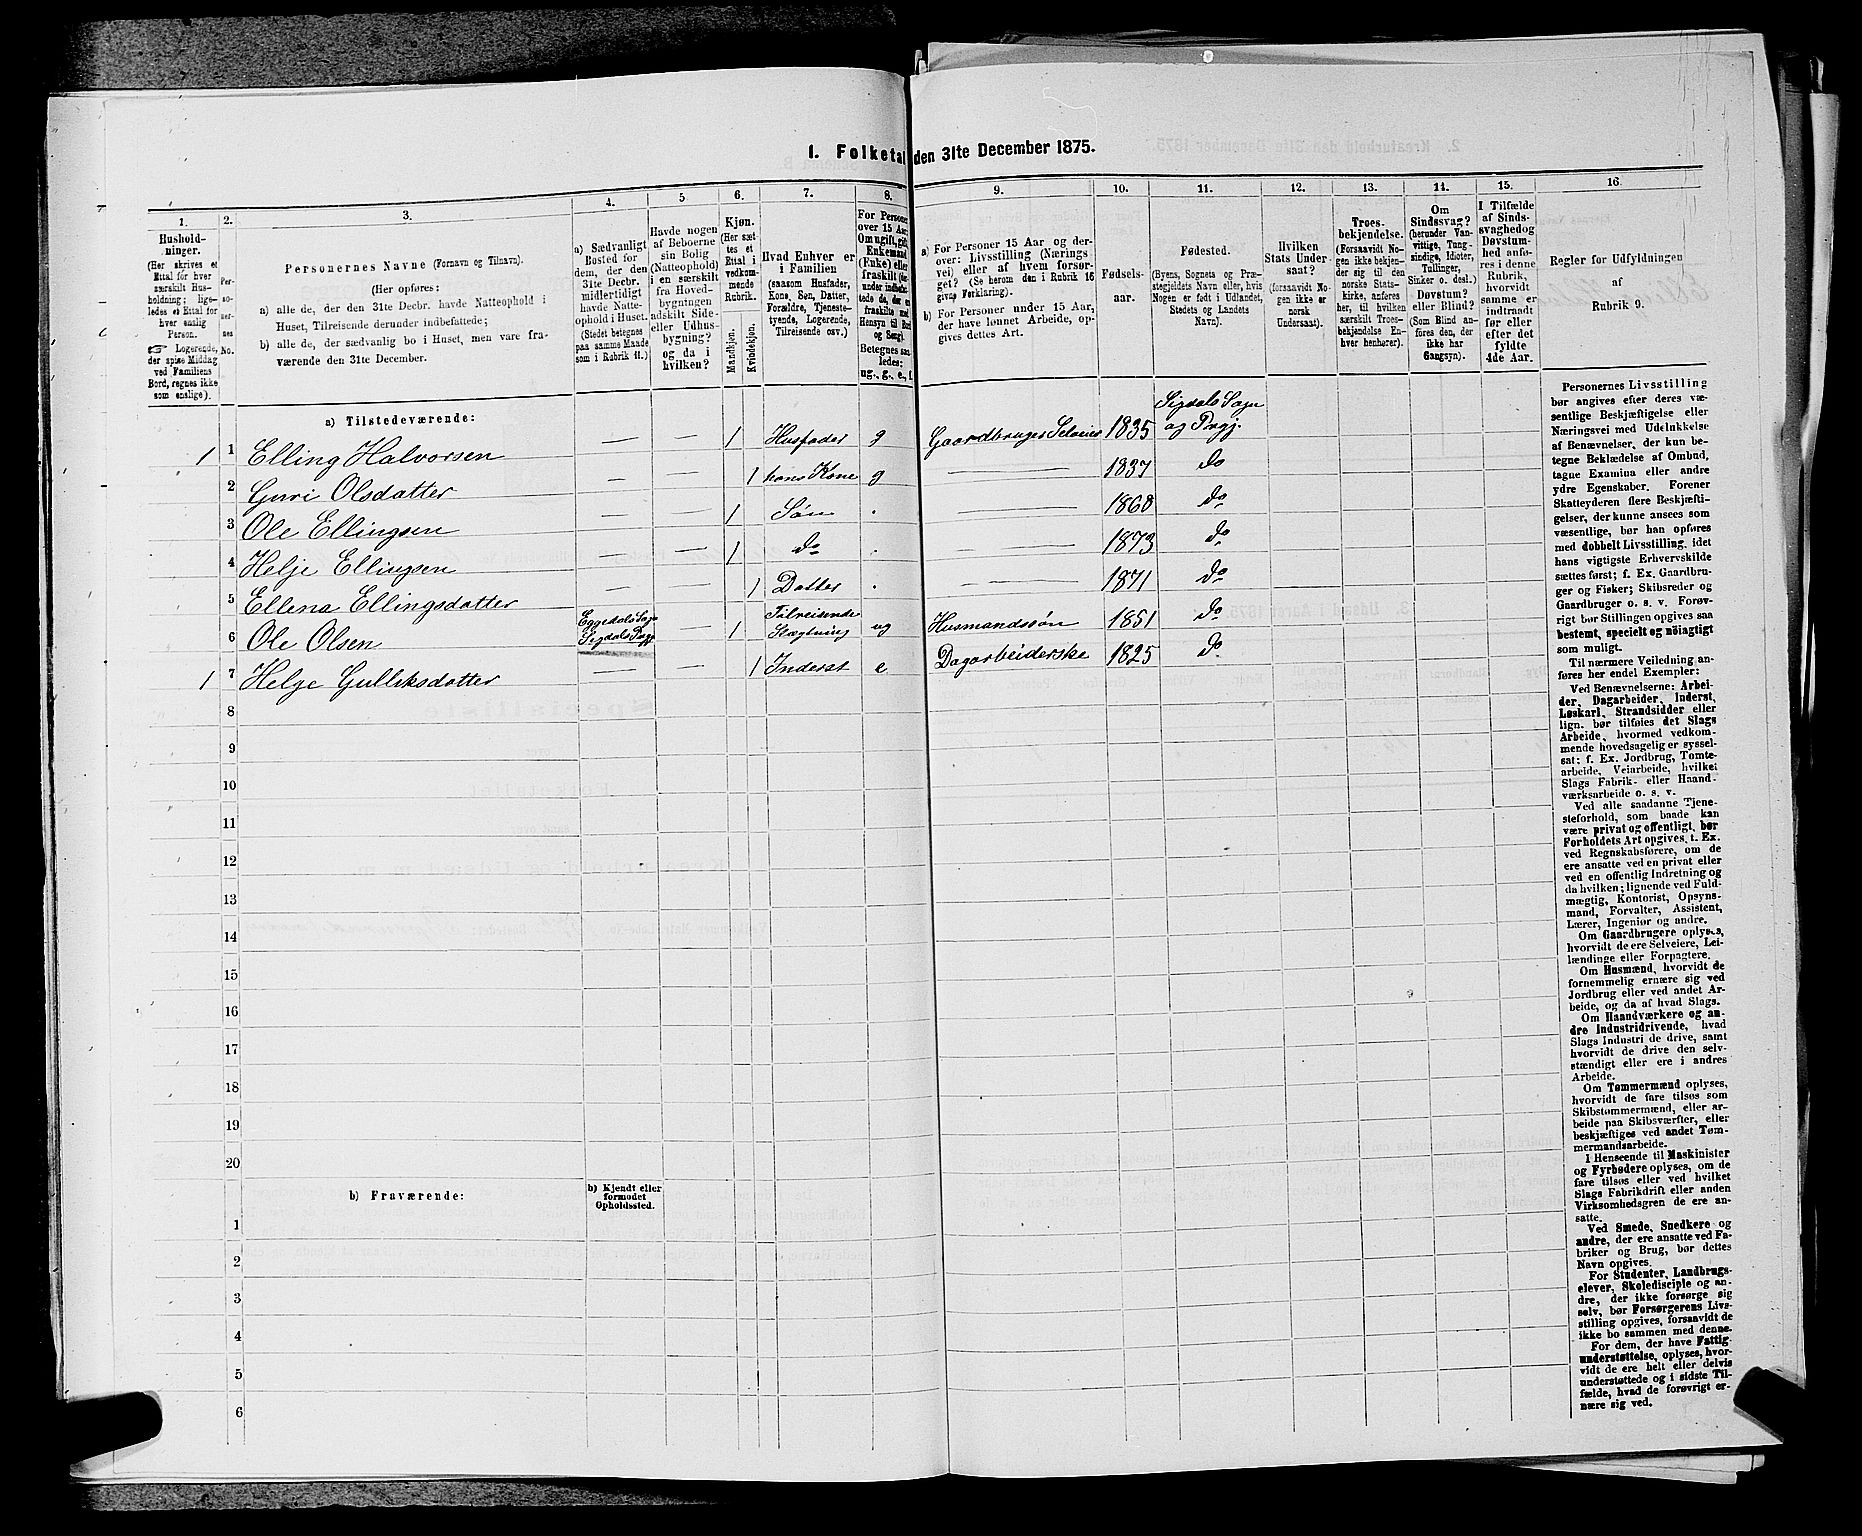 1. Folketal den 31te December 1875.
1.
Hushold-
ninger.
(Her skrives et
Ettal for hver
særskilt Hus-
holdning; lige-
ledes et Ettal for
hver enslig
Person.
☞ Logerende,
der spise Middag
ved Familiens
Bord, regnes ikke
som enslige).
2.
Per-
so-
ner-
nes
No.
3.
Personernes Navne (Fornavn og Tilnavn).
(Her opføres:
a) alle de, der den 31te Decbr. havde Natteophold i
Huset, Tilreisende derunder indbefattede;
b) alle de, der sædvanlig bo i Huset, men vare fra-
værende den 31te December.
4.
a) Sædvanligt
Bosted for
dem, der den
31te Decbr.
midlertidigt
havde Natte-
ophold i Huset.
(Stedet betegnes
paa samme Maade
som i Rubrik 11.)
5
Havde nogen
af Beboerne
sin Bolig
(Natteophold)
i en særskilt
fra Hoved-
bygningen
adskilt Side-
eller Udhus-
bygning?
og da i
hvilken?
6.
Kjøn.
(Her sæt-
tes et
Ettal i
vedkom-
mende
Rubrik.
Mandkjøn.
Kvindekjøn.
7.
Hvad Enhver er
i Familien
(saasom Husfader,
Kone, Søn, Datter,
Forældre, Tjeneste-
tyende, Logerende,
Tilreisende osv.)
8.
For Personer
over 15 Aar:
Om ugift, gift,
Enkemand
(Enke) eller
fraskilt
og Seng).
ug., g., e., f.
9.
a) For Personer 15 Aar og der-
over: Livsstilling (Nærings
vei) eller af hvem forsør-
get? (Se herom den i Rubrik 16
givne Forklaring).
b) For Personer under 15 Aar,
der have lønnet Arbeide, op-
gives dettes Art.
10.
Fødsels-
aar.
11.
Fødested.
(Byens, Sognets og Præ-
stegjeldets Navn eller, hvis
Nogen er født i Udlandet,
Stedets og Landets
Navn).
12.
Hvilken
Stats Under
saat?
(forsaavidt No-
gen ikke er
norsk
Undersaat).
13.
Troes-
bekjendelse.
(Forsaavidt No-
gen ikke bekjen-
der sig til den
norske Stats-
kirke, anføres
her, til hvilken
særskilt Troes-
bekjendelse En-
hver henhører).
14.
Om
Sindssvag?
(herunder Van-
vittige, Tung-
sindige, Idioter,
Tullinger,
Sinker o. desl.)
Døvstum?
eller Blind?
(Som Blind an-
føres den, der
ikke har
Gangsyn).
15.
I Tilfælde
af Sinds-
svaghed og
Døvstum-
hed anfø-
res i denne
Rubrik,
hvorvidt
samme er
indtraadt
før eller
efter det
fyldte
4de Aar.
16
Regler for Udfyldningen
af
Rubrik 9.
a) Tilstedeværende:
1 1 Elling Halvorsen — — 1 Husfader g Gaardbruger Selveier 1835 Sigdals Sogn
og Prgj.
2 Guri Olsdatter — — 1 hans Kone g — 1837 do
3 Ole Ellingsen — — 1 Søn . — 1860 do
4 Helje Ellingsen — — 1 do . — 1873 do
5 Ellena Ellingsdatter — — 1 Datter . — 1871 do
6 Ole Olsen Eggedals Sogn
Sigdals Prgj — 1 Tilreisende
Slægtning ug Husmandssøn 1851 do
1 7 Helge Gulliksdatter — — 1 Inderst e Dagarbeiderske 1825 do
8
9
10
11
12
13
14
15
16
17
18
19
20
b) Fraværende:
b) Kjendt eller
formodet
Opholdssted.
1
2
3
4
5
6
Personernes Livsstilling
bør angives efter deres væ-
sentlige Beskjæftigelse eller
Næringsvei med Udelukkelse
af Benævnelser, der kun be-
tegne Beklædelse af Ombud,
tagne Examina eller andre
ydre Egenskaber. Forener
Skatteyderen flere Beskjæfti-
gelser, der kunne ansees som
væsentlige, bør han opføres
med dobbelt Livsstilling, idet
hans vigtigste Erhvervskilde
sættes først; f. Ex. Gaardbru-
ger og Fisker; Skibsreder og
Gaardbruger o. s. v. Forøv-
rigt bør Stillingen opgives saa
bestemt, specielt og nöiagtigt
som muligt.
Til nærmere Veiledning an-
føres her endel Exempler:
Ved Benævnelserne: Arbei-
der, Dagarbeider, Inderst,
Løskarl, Strandsidder eller
lign. bør tilføies det Slags
Arbeide, hvormed vedkom-
mende hovedsagelig er syssel-
sat; f. Ex. Jordbrug, Tomte-
arbeide, Veiarbeide, hvilket
Slags Fabrik- eller Haand-
værksarbeide o. s. v.
Ved alle saadanne Tjene-
steforhold, som baade kan
være privat og offentligt, bør
Forholdets Art opgives, t. Ex.
ved Regnskabsførere, om de
ere ansatte ved en privat eller
ved en offentlig Indretning og
da hvilken; lignende ved Fuld-
mægtig, Kontorist, Opsyns-
mand, Forvalter, Assistent,
Lærer, Ingeniør og andre.
Om Gaardbrugere oplyses,
hvorvidt de ere Selveiere, Lei-
lændinge eller Forpagtere.
Om Husmænd, hvorvidt de
fornemmelig ernære sig ved
Jordbrug eller ved andet Ar-
beide, og da af hvad Slags.
Om Haandværkere og an-
dre Industridrivende, hvad
Slags Industri de drive, samt
hvorvidt de drive den selv-
stændigt eller ere i andres
Arbeide.
Om Tømmermænd oplyses,
hvorvidt de fare tilsøs som
Skibstømmermænd, eller ar-
beide paa Skibsværfter, eller
beskjæftiges ved andet Tøm-
mermandsarbeide.
I Henseende til Maskinister
og Fyrbødere oplyses, om de
fare tilsøs eller ved hvilket
Slags Fabrikdrift eller anden
Virksomhedsgren de ere an-
satte.
Ved Smede, Snedkere og
andre, der ere ansatte ved Fa-
briker og Brug, bør dettes
Navn opgives.
For Studenter, Landbrugs-
elever, Skoledisciple og an-
dre, der ikke forsørge sig
selv, bør Forsørgerens Livs-
stilling opgives, forsaavidt de
ikke bo sammen med denne.
For dem, der have Fattig-
understøttelse, oplyses, hvor-
vidt de ere helt eller delvis
understøttede og i sidste Til-
fælde, hvad de forøvrigt er-
nære sig ved.